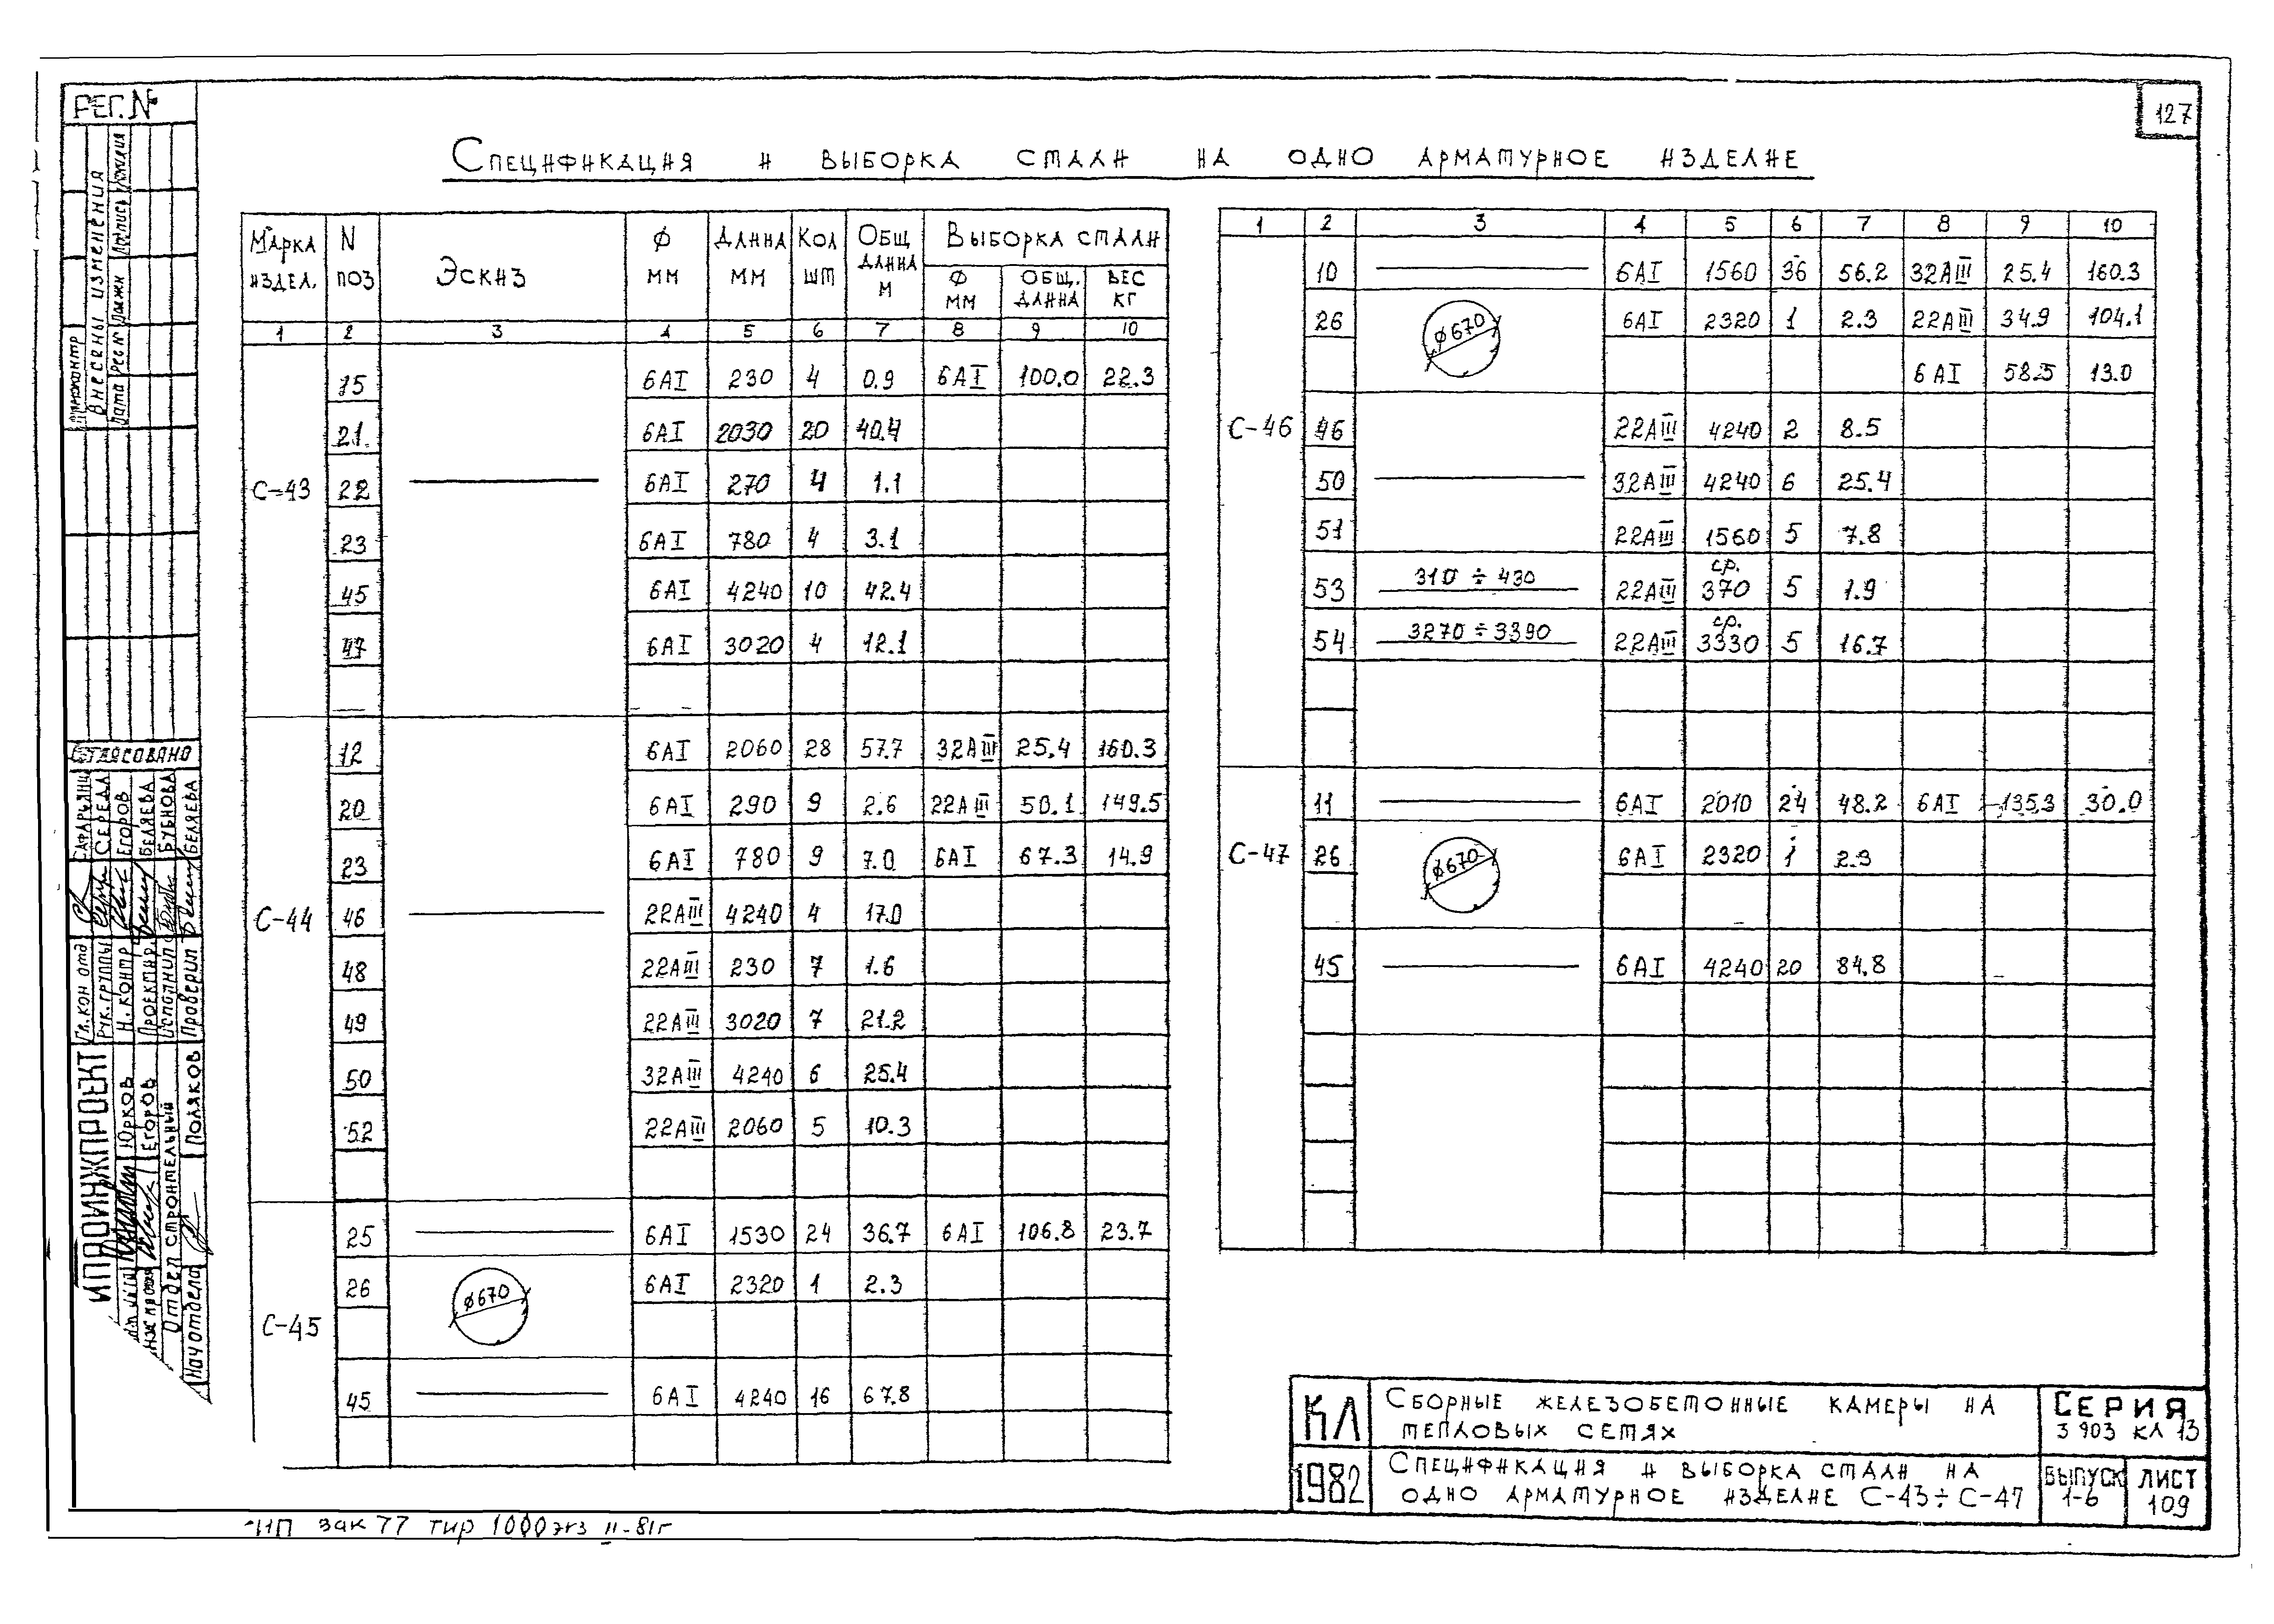 127
РЕГ.№
Спецификация и выборка стали на одно арматурное изделие
Марка издел. | N поз | Эскиз | Ф мм | Длина мм | Кол шт | Общ длина м | Выборка стали
Ф мм | общ. длина | вес кг
1 | 2 | 3 | 4 | 5 | 6 | 7 | 8 | 9 | 10
С-43
15 | 6АI | 230 | 4 | 0.9 | 6АI | 100.0 | 22.3
21 | 6АI | 2030 | 20 | 40.4
22 | 6АI | 270 | 4 | 1.1
23 | 6АI | 780 | 4 | 3.1
45 | 6АI | 4240 | 10 | 42.4
47 | 6АI | 3020 | 4 | 12.1
С-44
12 | 6АI | 2060 | 28 | 57.7 | 32АIII | 25.4 | 160.3
20 | 6АI | 290 | 9 | 2.6 | 22АIII | 50.1 | 149.5
23 | 6АI | 780 | 9 | 7.0 | 6АI | 67.3 | 14.9
46 | 22АIII | 4240 | 4 | 17.0
48 | 22АIII | 230 | 7 | 1.6
49 | 22АIII | 3020 | 7 | 21.2
50 | 32АIII | 4240 | 6 | 25.4
52 | 22АIII | 2060 | 5 | 10.3
С-45
25 | 6АI | 1530 | 24 | 36.7 | 6АI | 106.8 | 23.7
26 | ф670 | 6АI | 2320 | 1 | 2.3
45 | 6АI | 4240 | 16 | 67.8
1 | 2 | 3 | 4 | 5 | 6 | 7 | 8 | 9 | 10
С-46
10 | 6АI | 1560 | 36 | 56.2 | 32АIII | 25.4 | 160.3
26 | ф670 | 6АI | 2320 | 1 | 2.3 | 22АIII | 34.9 | 104.1
6АI | 58.5 | 13.0
46 | 22АIII | 4240 | 2 | 8.5
50 | 32АIII | 4240 | 6 | 25.4
51 | 22АIII | 1560 | 5 | 7.8
53 | 310 ÷ 430 | 22АIII | ср. 370 | 5 | 1.9
54 | 3270 ÷ 3390 | 22АIII | ср. 3330 | 5 | 16.7
С-47
11 | 6АI | 2010 | 24 | 48.2 | 6АI | 135.3 | 30.0
26 | ф670 | 6АI | 2320 | 1 | 2.3
45 | 6АI | 4240 | 20 | 84.8
КЛ | Сборные железобетонные камеры на
тепловых сетях
Серия
3 903 КЛ 13
1982 | Спецификация и выборка стали на
одно арматурное изделие С-43÷С-47
Выпуск
1-6
Лист
109
зак 77 тир 1000 экз II-81г
Внесены изменения
Дата
Рег №
Должн
Подпись
Фамилия
Согласовано
Гл.кон отд
Сафарьянц
Рук. группы
Середа
Н. контр
Егоров
Проектир.
Беляева
Исполнил
Бубнова
Проверил
Беляева
Юрков
Егоров
Отдел строительный
Нач отдела
Поляков